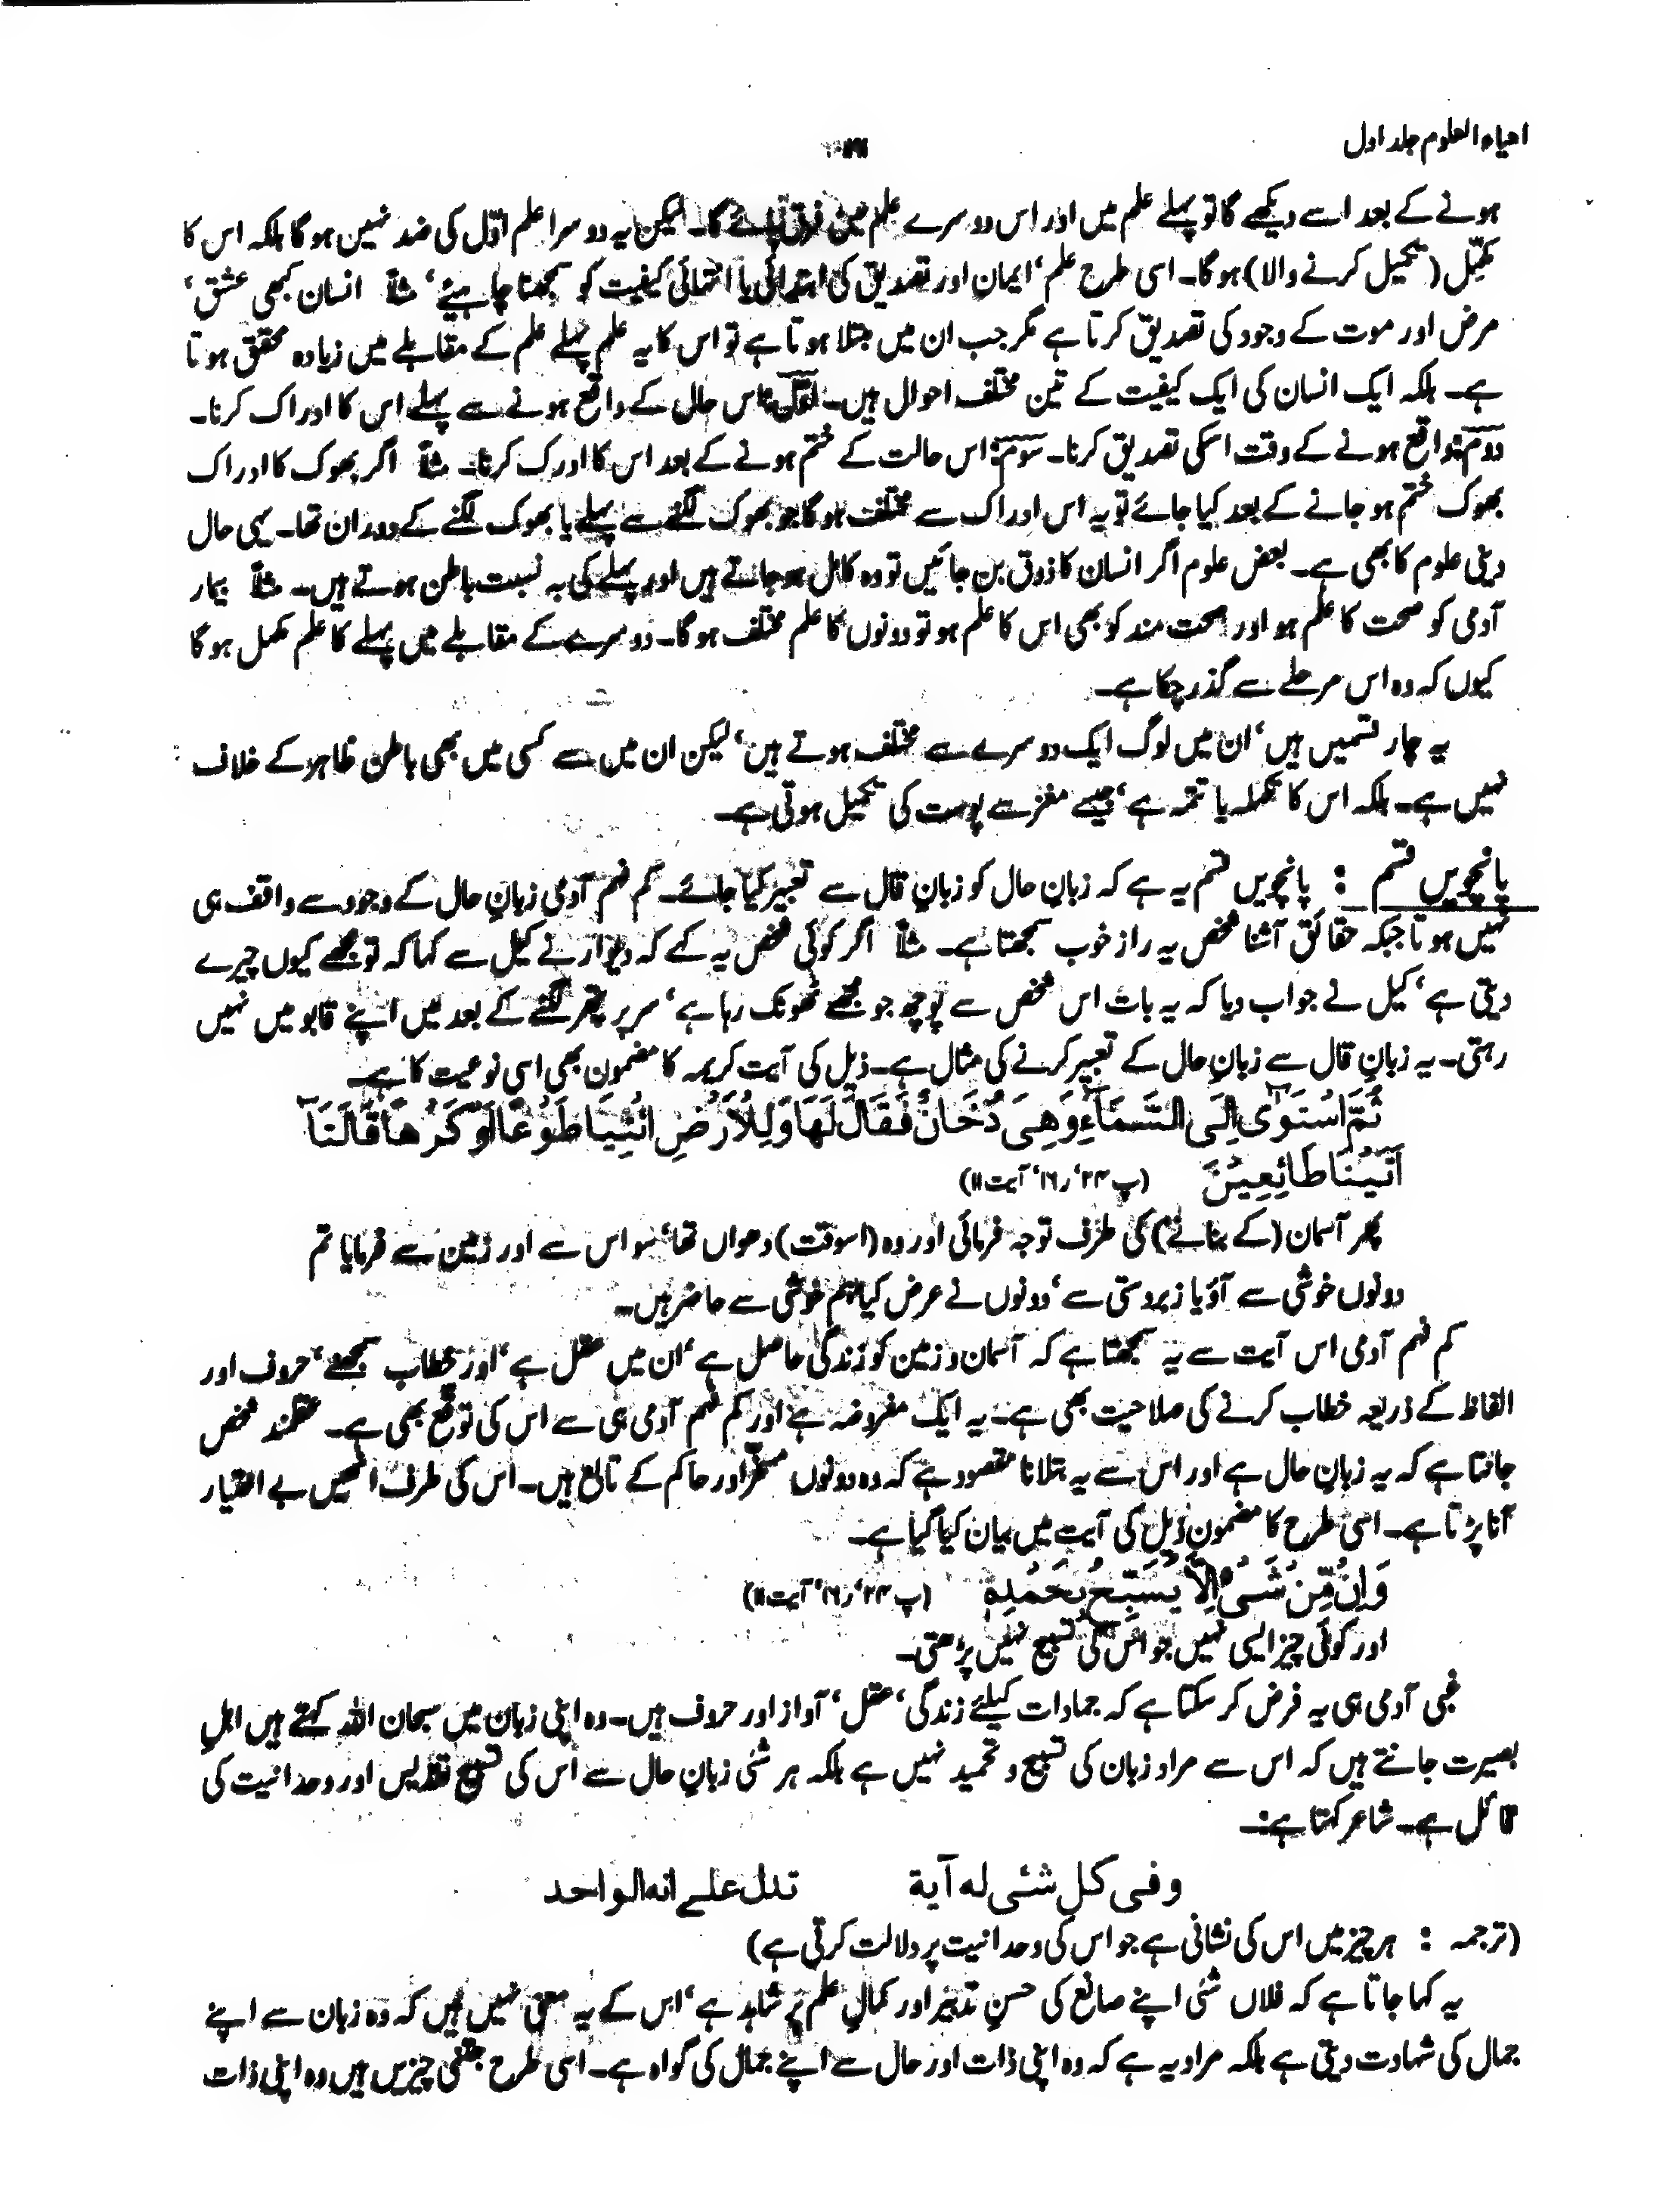 احیاء العلوم جلد اول
ہونے کے بعد اسے دیکھے گا تو پہلے علم میں اور اس دوسرے علم میں فرق پائے گا۔ لیکن یہ دوسرا علم اوّل کی ضد نہیں ہوگا بلکہ اس کا
مکمِّل (تکمیل کرنے والا) ہوگا۔ اسی طرح علم، ایمان اور تصدیق کی ابتدائی یا انتہائی کیفیت کو سمجھنا چاہیئے، مثلاً انسان کبھی عشق،
مرض اور موت کے وجود کی تصدیق کرتا ہے مگر جب ان میں مبتلا ہوتا ہے تو اس کا یہ علم پہلے علم کے مقابلے میں زیادہ محقق ہوتا
ہے۔ بلکہ ایک انسان کی ایک کیفیت کے تین مختلف احوال ہیں۔ اول: اس حال کے واقع ہونے سے پہلے اس کا ادراک کرنا۔
دوم: واقع ہونے کے وقت اسکی تصدیق کرنا۔ سوم: اس حالت کے ختم ہونے کے بعد اس کا اورک کرنا۔ مثلاً اگر بھوک کا ادراک
بھوک ختم ہو جانے کے بعد کیا جائے تو یہ اس ادراک سے مختلف ہوگا جو بھوک لگنے سے پہلے یا بھوک لگنے کے دوران تھا۔ یہی حال
دینی علوم کا بھی ہے۔ بعض علوم اگر انسان کا ذوق بن جائیں تو وہ کامل ہو جاتے ہیں اور پہلے کی بہ نسبت باطن ہوتے ہیں۔ مثلاً بیمار
آدمی کو صحت کا علم ہو اور صحت مند کو بھی اس کا علم ہو تو دونوں کا علم مختلف ہوگا۔ دوسرے کے مقابلے میں پہلے کا علم مکمل ہوگا
کیوں کہ وہ اس مرحلے سے گذر چکا ہے۔
یہ چار قسمیں ہیں، ان میں لوگ ایک دوسرے سے مختلف ہوتے ہیں، لیکن ان میں سے کسی میں بھی باطن ظاہر کے خلاف
نہیں ہے۔ بلکہ اس کا تکملہ یا تتمہ ہے، جیسے مغز سے پوست کی تکمیل ہوتی ہے۔
پانچویں قسم : پانچویں قسم یہ ہے کہ زبانِ حال کو زبانِ قال سے تعبیر کیا جائے۔ کم فہم آدمی زبانِ حال کے وجود سے واقف ہی
نہیں ہوتا جبکہ حقائق آشنا شخص یہ راز خوب سمجھتا ہے۔ مثلاً اگر کوئی شخص یہ کہے کہ دیوار نے کیل سے کہا کہ تو مجھے کیوں چیرے
دیتی ہے، کیل نے جواب دیا کہ یہ بات اس شخص سے پوچھ جو مجھے ٹھونک رہا ہے، سر پر پتھر لگنے کے بعد میں اپنے قابو میں نہیں
رہتی۔ یہ زبانِ قال سے زبانِ حال کے تعبیر کرنے کی مثال ہے۔ ذیل کی آیت کریمہ کا مضمون بھی اسی نوعیت کا ہے۔
ثُمَّ اسْتَوٰٓى اِلَى السَّمَآءِ وَهِىَ دُخَانٌ فَقَالَ لَهَا وَلِلْاَرْضِ ائْتِيَا طَوْعًا اَوْ كَرْهًا قَالَتَآ
اَتَيْنَا طَائِعِيْنَ (پ ۲۴، ر ۱۶، آیت ۱۱)
پھر آسمان (کے بنانے) کی طرف توجہ فرمائی اور وہ (اسوقت) دھواں تھا، سو اس سے اور زمین سے فرمایا تم
دونوں خوشی سے آؤ یا زبردستی سے، دونوں نے عرض کیا ہم خوشی سے حاضر ہیں۔
کم فہم آدمی اس آیت سے یہ سمجھتا ہے کہ آسمان و زمین کو زندگی حاصل ہے، ان میں عقل ہے، اور خطاب سمجھنے، حروف اور
الفاظ کے ذریعہ خطاب کرنے کی صلاحیت بھی ہے۔ یہ ایک مفروضہ ہے اور کم فہم آدمی ہی سے اس کی توقع بھی ہے۔ عقلمند شخص
جانتا ہے کہ یہ زبانِ حال ہے اور اس سے یہ بتلانا مقصود ہے کہ وہ دونوں مسخّر اور حاکم کے تابع ہیں۔ اس کی طرف انھیں بے اختیار
آنا پڑتا ہے۔ اسی طرح کا مضمون ذیل کی آیت میں بیان کیا گیا ہے۔
وَاِنْ مِّنْ شَىْءٍ اِلَّا يُسَبِّحُ بِحَمْدِهٖ (پ ۲۴، ر ۱۶، آیت ۱۱)
اور کوئی چیز ایسی نہیں جو اس کی تسبیح نہیں پڑھتی۔
غبی آدمی ہی یہ فرض کر سکتا ہے کہ جمادات کیلئے زندگی، عقل، آواز اور حروف ہیں۔ وہ اپنی زبان میں سبحان اللہ کہتے ہیں اہلِ
بصیرت جانتے ہیں کہ اس سے مراد زبان کی تسبیح و تحمید نہیں ہے بلکہ ہر شئی زبانِ حال سے اس کی تسبیح تقدیس اور وحدانیت کی
قائل ہے۔ شاعر کہتا ہے:۔
وفى كل شئى له آية تدل على انه الواحد
(ترجمہ : ہر چیز میں اس کی نشانی ہے جو اس کی وحدانیت پر دلالت کرتی ہے)
یہ کہا جاتا ہے کہ فلاں شئی اپنے صانع کی حسنِ تدبیر اور کمالِ علم پر شاہد ہے، اس کے یہ معنی نہیں ہیں کہ وہ زبان سے اپنے
جمال کی شہادت دیتی ہے بلکہ مراد یہ ہے کہ وہ اپنی ذات اور حال سے اپنے جمال کی گواہ ہے۔ اسی طرح جتنی چیزیں ہیں وہ اپنی ذات